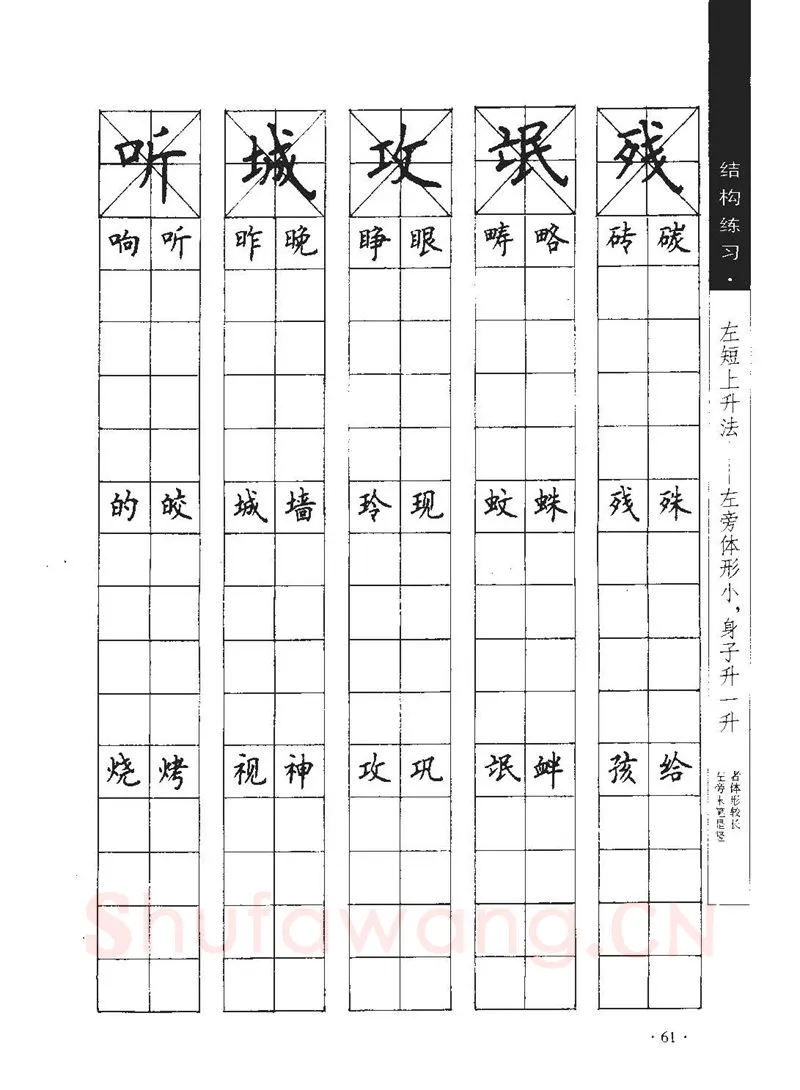 听 城 攻 氓 残
响 听 昨 晚 睁 眼 畴 略 砖 碳
的 皎 城 墙 玲 现 蚊 蛛 残 殊
烧 烤 视 神 攻 巩 氓 衅 孩 给
结构练习·
左短上升法——左旁体形小,身子升一升
左旁末笔是竖
者体形较长
Shufawang.CN
·61·